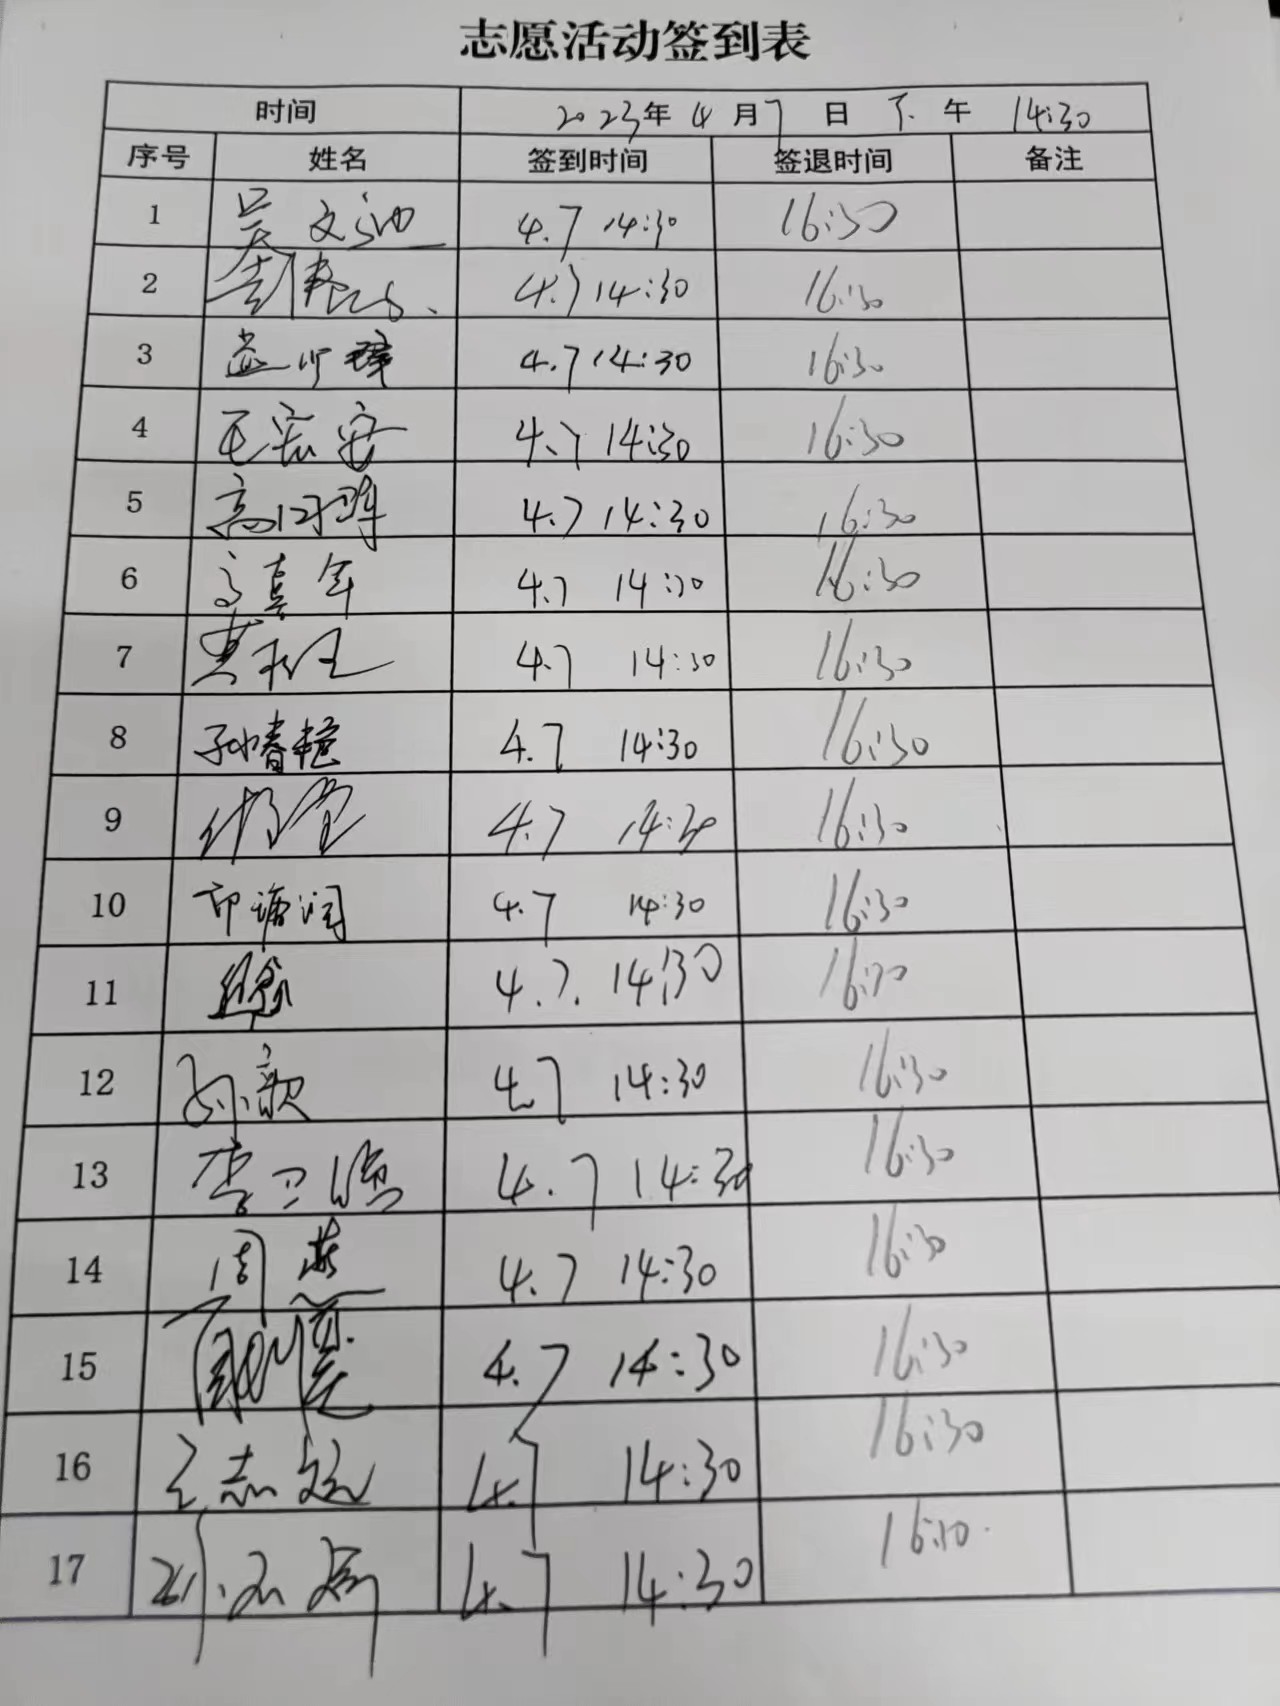 志愿活动签到表
时间 2023年 4月7日 下午 14:30
序号 姓名 签到时间 签退时间 备注
1 吴文 4.7 14:30 16:30
2 4.7 14:30 16:30
3 4.7 14:30 16:30
4 王宏安 4.7 14:30 16:30
5 高 4.7 14:30 16:30
6 高喜年 4.7 14:30 16:30
7 4.7 14:30 16:30
8 孙春艳 4.7 14:30 16:30
9 4.7 14:30 16:30
10 4.7 14:30 16:30
11 4.7. 14:30 16:30
12 孙歆 4.7 14:30 16:30
13 李卫 4.7 14:30 16:30
14 周燕 4.7 14:30 16:30
15 4.7 14:30 16:30
16 王志远 4.7 14:30 16:30
17 4.7 14:30 16:30